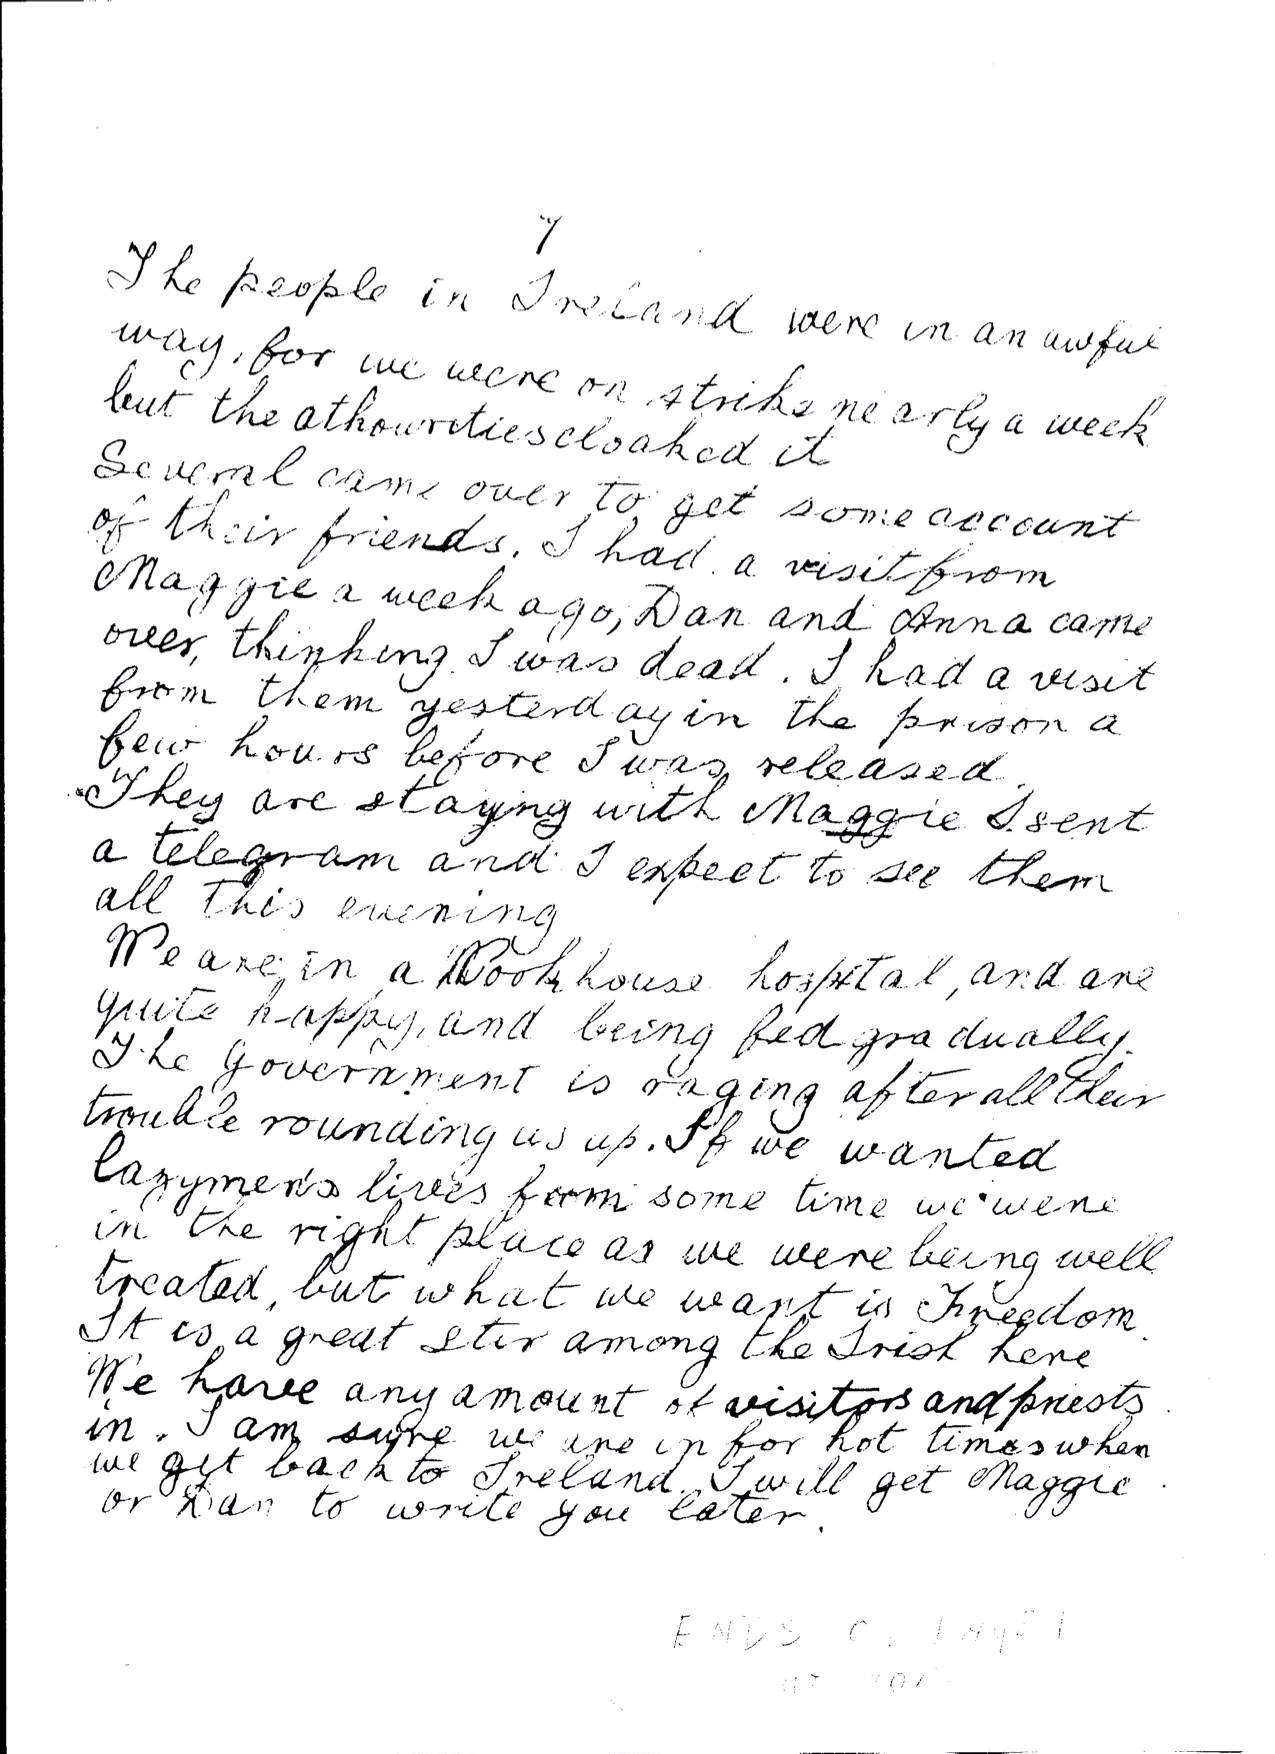 7
The people in Ireland were in an awful
way, for we were on strike nearly a week
but the athourities cloaked it
Several came over to get some account
of their friends. I had a visit from
Maggie a week ago, Dan and Anna came
over, thinking I was dead. I had a visit
from them yesterday in the prison a
few hours before I was released.
They are staying with Maggie I sent
a telegram and I expect to see them
all this evening
We are in a Workhouse hospital, and are
quite happy, and being fed gradually.
The Government is raging after all their
trouble rounding us up. If we wanted
lazymens lives for some time we were
in the right place as we were being well
treated, but what we want is Freedom.
It is a great stir among the Irish here
We have any amount of visitors and priests
in. I am sure we are in for hot times when
we get back to Ireland. I will get Maggie
or Dan to write you later.
ENDS